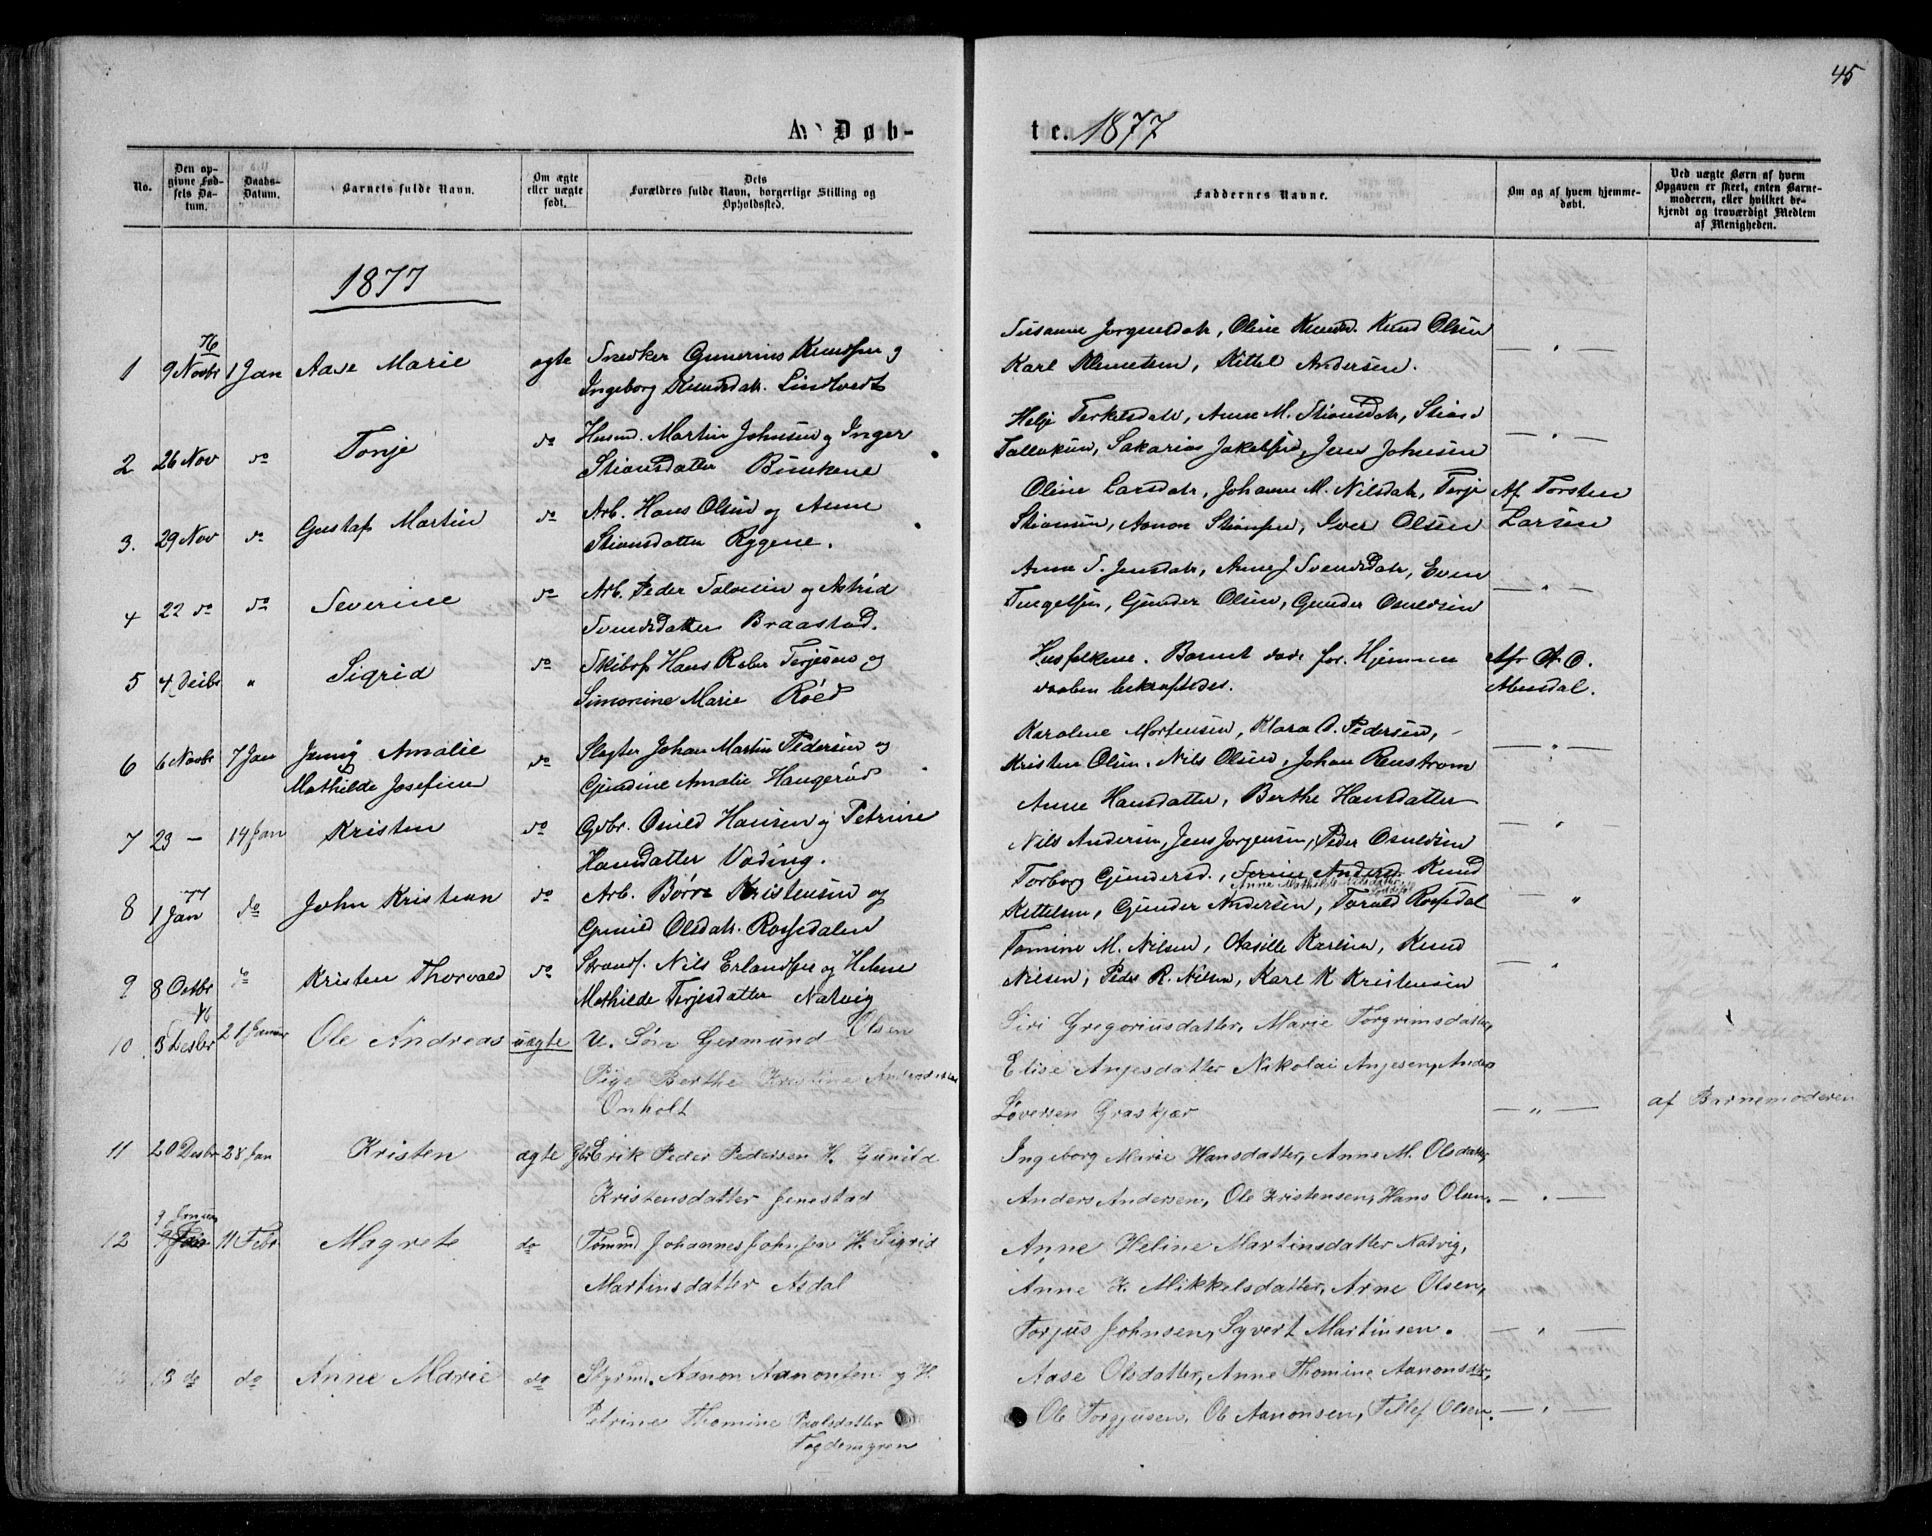 45
A. Døb-
te. 1877
No.
Den op-
givne Fød-
sels Da-
tum.
Daabs-
Datum.
Barnets fulde Navn.
Om ægte
eller uægte
født.
Dets
Forældres fulde Navn, borgerlige Stilling og
Opholdssted.
Faddernes Navne.
Om og af hvem hjemme-
døbt.
Ved uægte Børn af hvem
Opgaven er skeet, enten Barne-
moderen, eller hvilket be-
kjendt og troværdigt Medlem
af Menigheden.
1877
76
1 9 Novbr 1 Jan Aase Marie ægte Snedker Gunerius Knudsen og
Ingeborg Knudsdatr. Lindtvedt
Susanne Jorgensdatr, Oline Knudsd. Knud Olsen
Karl Klemetsen, Kittel Andersen. — " —
2 26 Nov do Tonje do Husmd. Martin Johnsen og Inger
Stiansdatter Buukene
Helje Terkelsdatr, Anne M. Stiansdatr, Stian
Tallaksen, Sakarias Jakobsen, Jens Johnsen — " —
3. 29 Nov do Gustaf Martin do Arb. Hans Olsen og Anne
Stiansdatter Rygene.
Oline Larsdatr, Johanne M. Nilsdatr, Terje Af Torsten
Stiansen, Aanon Stiansen, Iver Olsen Larsen
4 22 do do Severine do Arb. Peder Salvesen og Astrid
Svendsdatter Braastad.
Anne S. Jensdatr, Anne J. Svendsdatr, Even
Gunder Olsen, Gunder Osuldsen — " —
5 4 Deibr " Sigrid do Skibsf Hans Reber Terjesen og
Simonine Marie Röed
Husfolkene. Barnet døde før Hjemme Af A. O.
daaben bekræftedes.
6 6 Novbr 7 Jan Jenny Amalie do Slagter Johan Martin Pedersen og
Mathilde Josefine Gundine Amalie Haugerød
Karolene Mortensen, Klara O. Pedersen,
Kristen Olsen, Nils Olsen, Johan Renstrom — " —
7 23 — 14 Jan Kristen do Gbr. Osuld Hansen og Petrine
Hansdatter Vading.
Anne Hansdatter, Berthe Hansdatter
Nils Andersen, Jens Jorgensen, Peder Osuldsen — " —
77
8 1 Jan do John Kristian do Arb. Børre Kristensen og
Gunild Olsdatr. Rossedalen
Torborg Gundersd., Serine Andersd. Knud
Anne Mathilde Nilsdatter
Kittelsen, Gunder Andersen, Torvald Rossedal — " —
9 8 Octbr do Kristen Thorvald do Strands. Nils Erlandsen og Helene
Mathilde Terjesdatter Natvig
Tomine M. Nilsen, Aasille Karlsen, Knud
Nilsen, Peder R. Nilsen, Karl K Kristensen — " —
76
10 3 Desbr 21 Januar Ole Andreas uægte U. Søn Germund Olsen
Pige Berthe Kristine Andersdatter
Onholt
Siri Gregoriusdatter, Marie Torgrimsdatter,
Elise Anjesdatter Nikolai Anjesen, Anders
Løversen Graskjær — " — af Barnemoderen
11 20 Desbr 28 Jan Kristen ægte Gbr Erik Peder Pedersen H. Gunild
Kristensdatter Jenestad
Ingeborg Marie Hansdatter, Anne M. Olsdatter,
Anders Andersen, Ole Kristensen, Hans Olsen. — " —
9 Januar
12 11 Febr Magrete do Tømmd Johannes Johnsen H. Sigrid
Martinsdatter Asdal
Anne Heline Martinsdatter Natvig,
Anne K. Mikkelsdatter, Arne Olsen,
Torjus Johnsen, Syvert Martinsen. — " —
13 do do Anne Marie do Styrmd. Aanon Aanonsen og H.
Petrine Thomine Paalsdatter
Fogdemyren
Aase Olsdatter, Anne Thomine Aanonsdtr,
Ole Torgjusen, Ole Aanonsen, Tellef Olsen. — " —